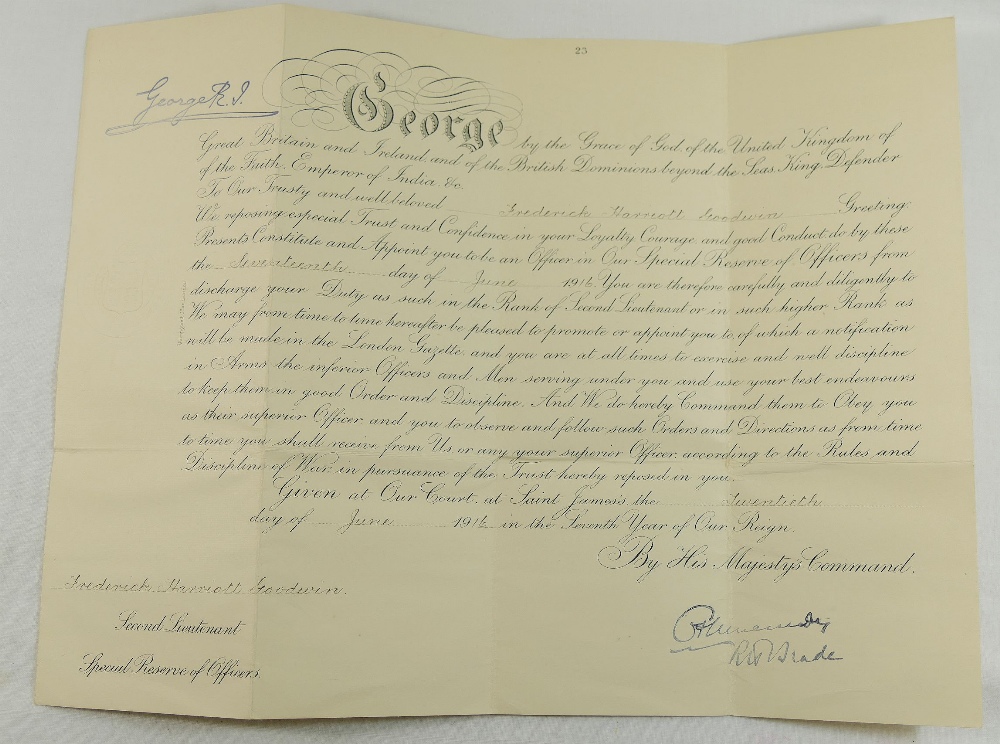 23
George R.I.
George by the Grace of God, of the United Kingdom of
Great Britain and Ireland and of the British Dominions beyond the Seas King, Defender
of the Faith, Emperor of India, &c.
To Our Trusty and well beloved Frederick Harriott Goodwin Greeting:
We reposing especial Trust and Confidence in your Loyalty, Courage, and good Conduct do by these
Presents Constitute and Appoint you to be an Officer in Our Special Reserve of Officers from
the day of June 1916. You are therefore carefully and diligently to
discharge your Duty as such in the Rank of Second Lieutenant or in such higher Rank as
We may from time to time hereafter be pleased to promote or appoint you to, of which a notification
will be made in the London Gazette, and you are at all times to exercise and well discipline
in Arms the inferior Officers and Men serving under you and use your best endeavours
to keep them in good Order and Discipline. And We do hereby Command them to Obey you
as their superior Officer, and you to observe and follow such Orders and Directions as from time
to time you shall receive from Us or any your superior Officer, according to the Rules and
Discipline of War, in pursuance of the Trust hereby reposed in you.
Given at Our Court, at Saint James's the Twentieth
day of June 1916 in the Seventh Year of Our Reign.
By His Majesty's Command.
Frederick Harriott Goodwin.
Second Lieutenant
Special Reserve of Officers.
R H Brade